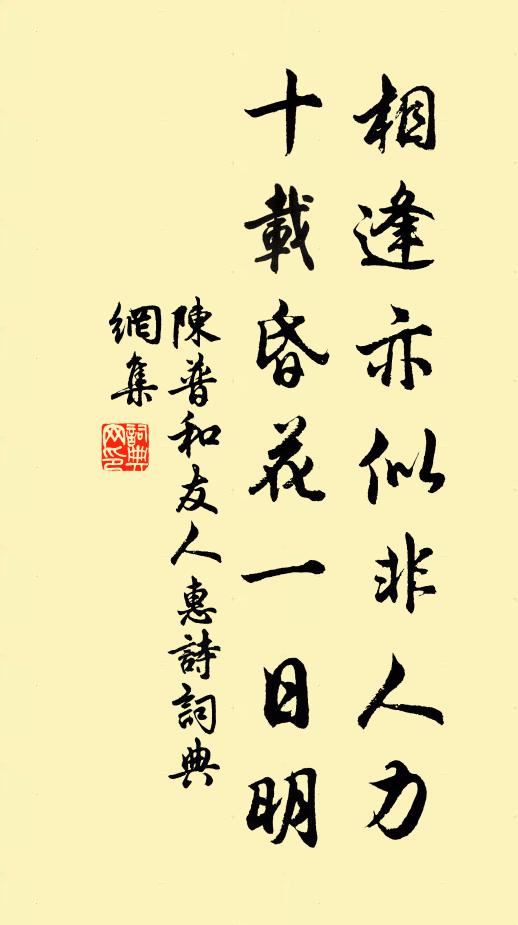 相逢亦似非人力
十載昏花一日明
陳普和友人惠詩詞典
網集
詞典
网印